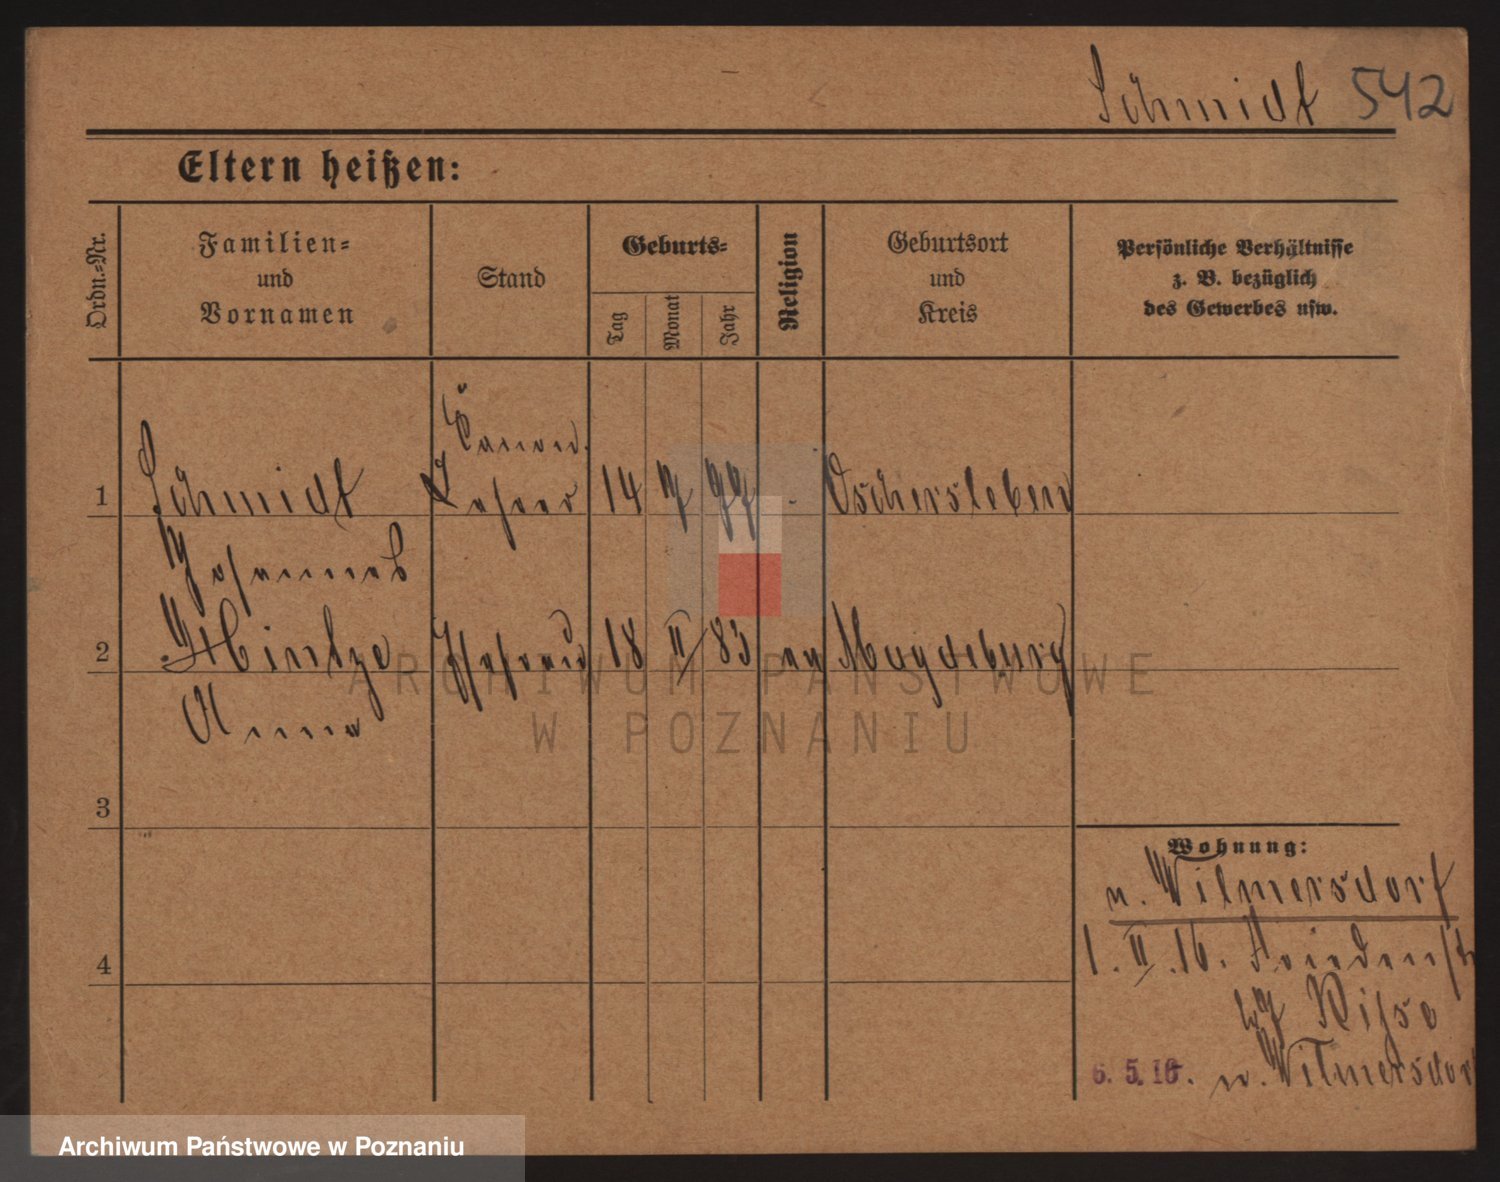 Schmidt 542
Eltern heißen:
Ordn.=Nr.
Familien=
und
Vornamen
Stand
Geburts=
Tag
Monat
Jahr
Religion
Geburtsort
und
Kreis
Persönliche Verhältnisse
z. B. bezüglich
des Gewerbes usw.
Kanon.
1 Schmidt Lehrer 14 7 77 - Oschersleben
Johannes
2 Hintze Ehefrau 18 II 83 ev Magdeburg
Anna
3
4
Wohnung:
n. Wilmersdorf
1. II. 16. Friedenstr
6. 5. 16. n. Wilmersdorf
ARCHIWUM PAŃSTWOWE
W POZNANIU
Archiwum Państwowe w Poznaniu